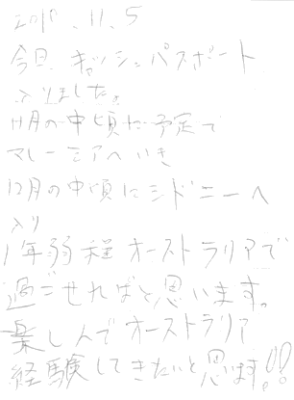 2018.11.5
今日、キャッシュパスポート
入りました。
11月の中頃に予定で
マレーシアへいき
12月の中頃にシドニーへ
入り
1年弱程オーストラリアで
過ごせればと思います。
楽しんでオーストラリア
経験してきたいと思います!!